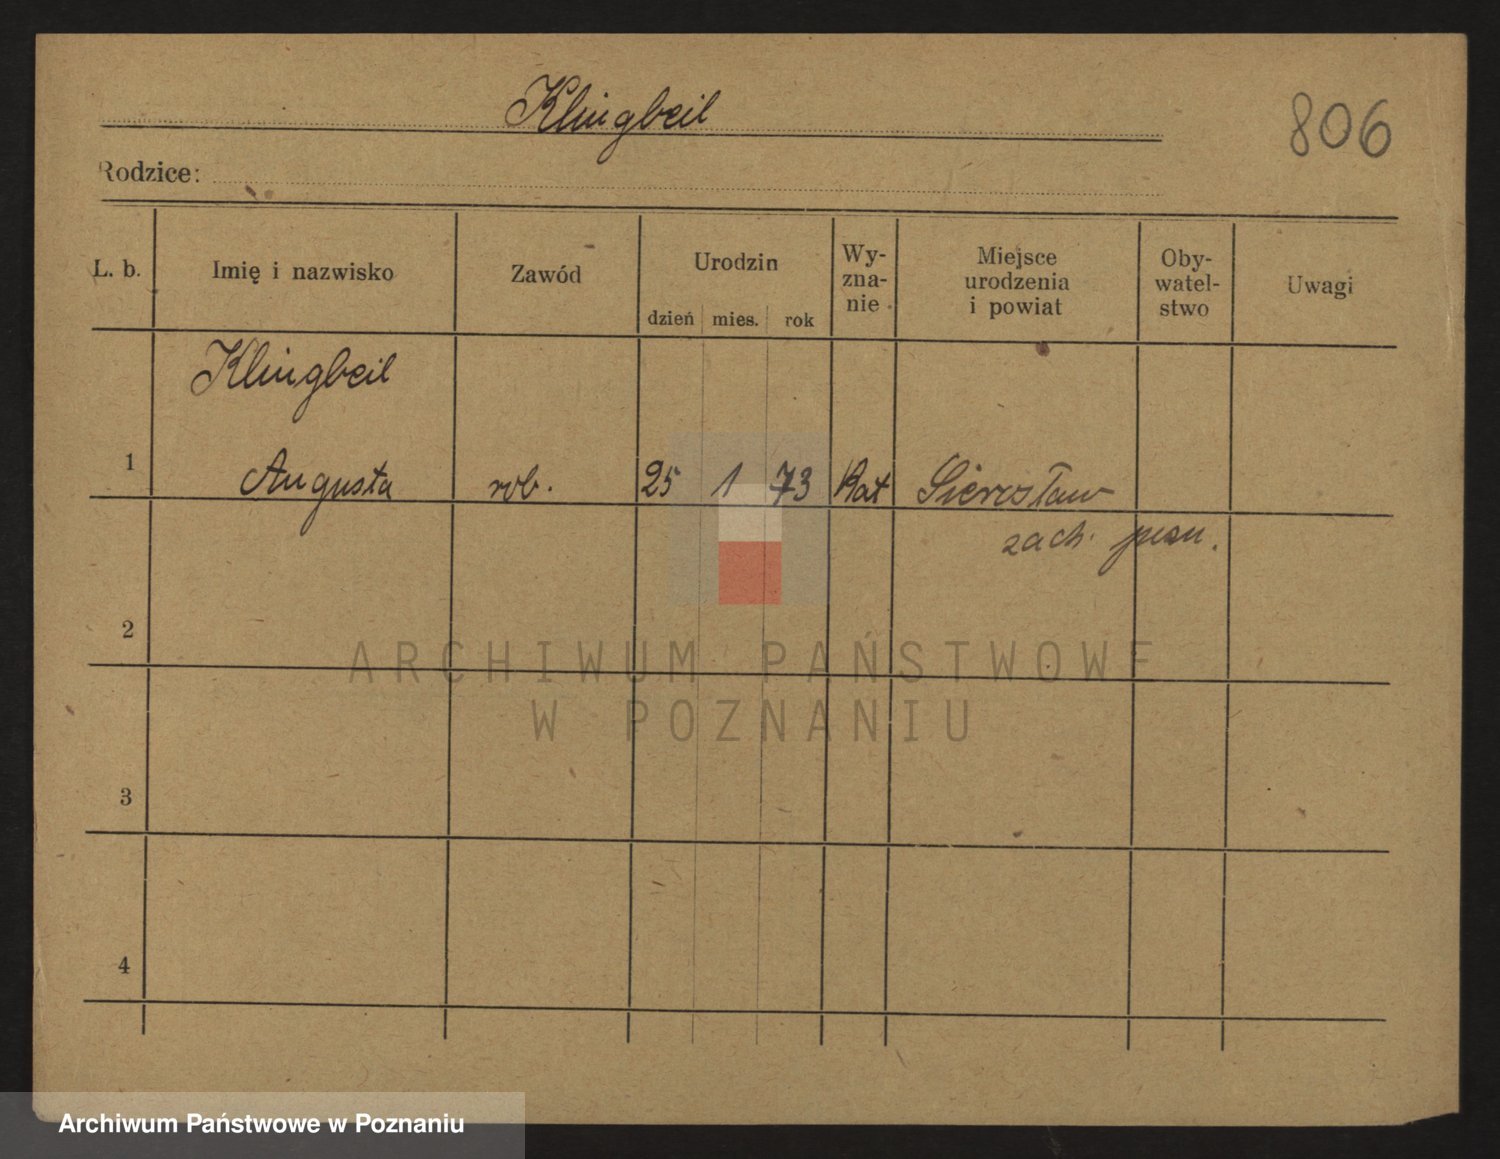 Klingbeil
806
Rodzice:
L. b. Imię i nazwisko Zawód Urodzin Wy-zna-nie Miejsce urodzenia i powiat Oby-watel-stwo Uwagi
dzień mies. rok
Klingbeil
1 Augusta rob. 25 1 73 Kat Sierosław
zach. pozn.
2
ARCHIWUM PAŃSTWOWE
W POZNANIU
3
4
Archiwum Państwowe w Poznaniu